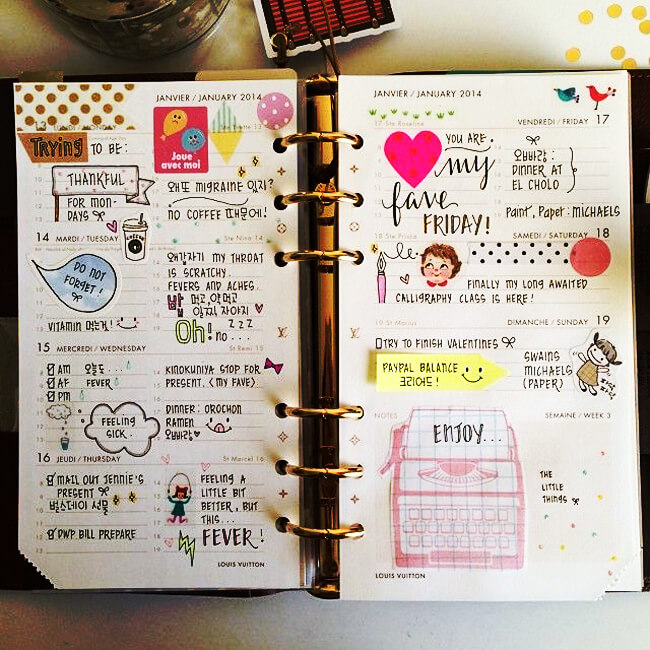 JANVIER / JANUARY 2014
13 LUNDI / MONDAY
TRYING TO BE:
THANKFUL
FOR MON-
DAYS
Joue
avec moi
왜또 MIGRAINE 있지?
NO COFFEE 때문에!
14 MARDI / TUESDAY
Ste Nina 14
DO NOT
FORGET!
VITAMIN 먹는거!
왜갑자기 MY THROAT
IS SCRATCHY.
FEVERS AND ACHES.
밥 먹고, 약먹고
일찍 자야지
Oh! no... z z z
15 MERCREDI / WEDNESDAY
St Remi 15
AM 오늘도...
AF FEVER
PM
FEELING
SICK.
KINOKUNIYA STOP FOR
PRESENT. <MY FAVE>
DINNER: OROCHON
RAMEN
오빠랑
16 JEUDI / THURSDAY
St Marcel 16
MAIL OUT JENNIE'S
PRESENT
벌스데이 선물
DWP BILL PREPARE
FEELING A
LITTLE BIT
BETTER, BUT
THIS...
FEVER!
LOUIS VUITTON
JANVIER / JANUARY 2014
17 Ste Roseline
VENDREDI / FRIDAY 17
YOU ARE
my
fave
FRIDAY!
오빠랑:
DINNER AT
EL CHOLO
Paint, Paper: MICHAELS
18 Ste Prisca
SAMEDI / SATURDAY 18
FINALLY MY LONG AWAITED
CALLIGRAPHY CLASS IS HERE!
19 St Marius
DIMANCHE / SUNDAY 19
TRY TO FINISH VALENTINES
PAYPAL BALANCE
SWAINS
MICHAELS
(PAPER)
NOTES
SEMAINE / WEEK 3
ENJOY...
THE
LITTLE
THINGS
LOUIS VUITTON